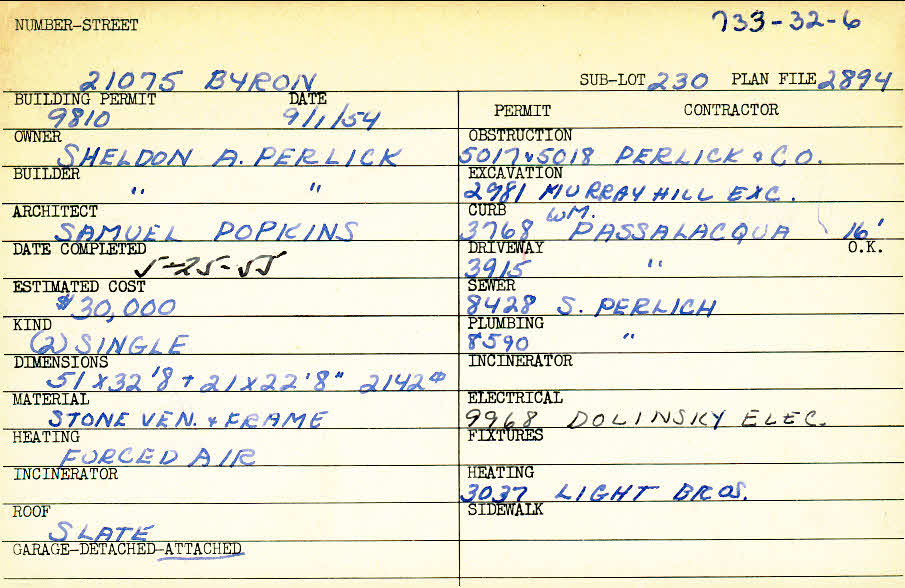 NUMBER-STREET 733-32-6
21075 BYRON SUB-LOT 230 PLAN FILE 2894
BUILDING PERMIT DATE
9810 9/1/54
OWNER
SHELDON A. PERLICK
BUILDER
" "
ARCHITECT
SAMUEL POPKINS
DATE COMPLETED
5-25-55
ESTIMATED COST
$30,000
KIND
(2) SINGLE
DIMENSIONS
51 X 32'8 + 21 X 22'8" 2142
MATERIAL
STONE VEN. & FRAME
HEATING
FORCED AIR
INCINERATOR
ROOF
SLATE
GARAGE-DETACHED-ATTACHED
PERMIT CONTRACTOR
OBSTRUCTION
5017 & 5018 PERLICK & CO.
EXCAVATION
2981 MURRAY HILL EXC.
CURB WM.
3768 PASSALACQUA 16'
DRIVEWAY O.K.
3915 "
SEWER
8428 S. PERLICH
PLUMBING
8590 "
INCINERATOR
ELECTRICAL
9968 DOLINSKY ELEC.
FIXTURES
HEATING
3037 LIGHT BROS.
SIDEWALK